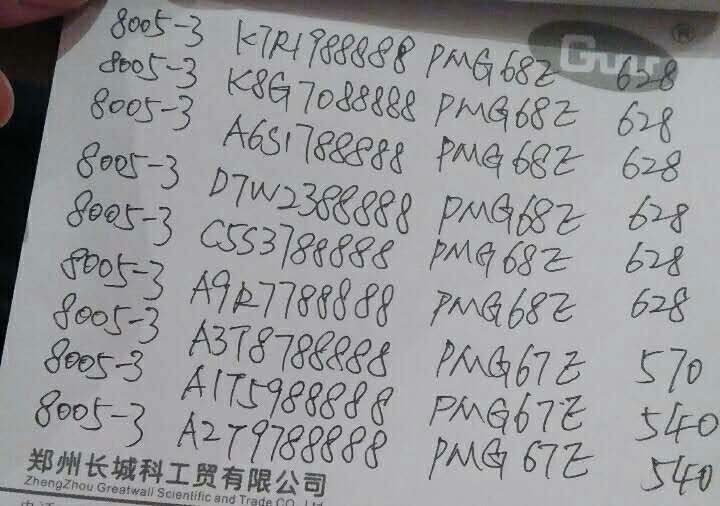 8005-3 K7R1988888 PMG68Z 628
8005-3 K8G7088888 PMG68Z 628
8005-3 A6S1788888 PMG68Z 628
8005-3 D7W2388888 PMG68Z 628
8005-3 C5S3788888 PMG68Z 628
8005-3 A9R7788888 PMG68Z 628
8005-3 A3T8788888 PMG67Z 570
8005-3 A1T5988888 PMG67Z 540
8005-3 A2T9788888 PMG67Z 540
郑州长城科工贸有限公司
ZhengZhou Greatwall Scientific and Trade CO.,Ltd